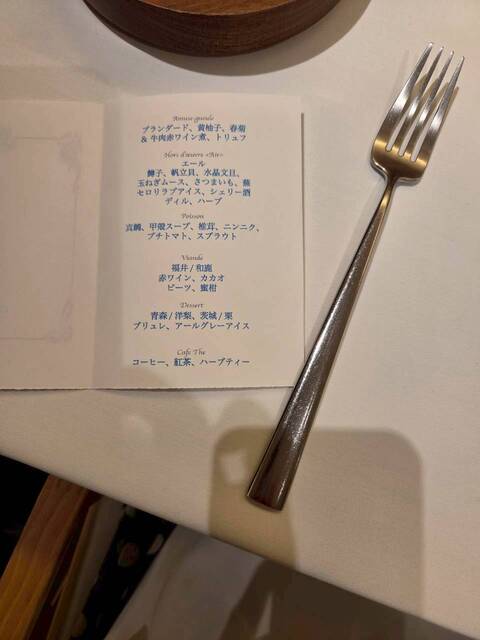 Amuse-gueule
ブランダード、黄柚子、春菊
& 牛肉赤ワイン煮、トリュフ
Hors d'œuvre «Aile»
エール
鰤子、帆立貝、水晶文旦、
玉ねぎムース、さつまいも、蕪
セロリラブアイス、シェリー酒
ディル、ハーブ
Poisson
真鯛、甲殻スープ、椎茸、ニンニク、
プチトマト、スプラウト
Viande
福井 / 和鹿
赤ワイン、カカオ
ビーツ、蜜柑
Dessert
青森 / 洋梨、茨城 / 栗
ブリュレ、アールグレーアイス
Cafe The
コーヒー、紅茶、ハーブティー